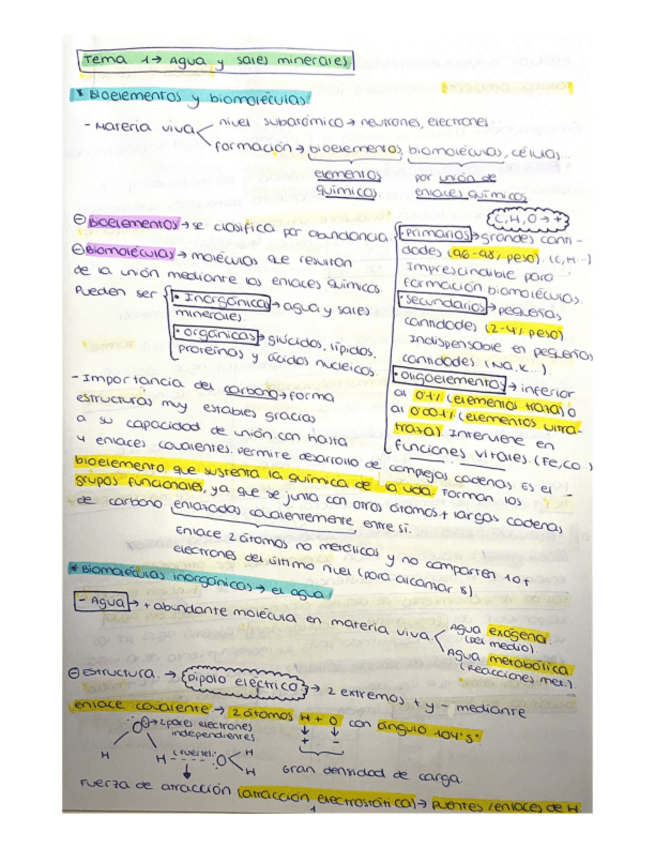 Tema 1 → Agua y sales minerales
* Bioelementos y biomoléculas
- Materia viva < nivel subatómico → neutrones, electrones
formación → bioelementos, biomoléculas, células...
elementos químicos
por unión de enlaces químicos
⊖ Bioelementos → se clasifica por abundancia
C, H, O → +
Primarios → grandes canti-
dades (96-98% peso). (C, H..)
Imprescindible para
formación biomoléculas.
• Secundarios → pequeñas
cantidades (2-4% peso)
Indispensable en pequeñas
cantidades. (Na, K...).
• Oligoelementos → inferior
al 0'1% (elementos traza) o
al 0'001% (elementos ultra-
traza). Interviene en
funciones vitales. (Fe, Co..)
⊖ Biomoléculas → moléculas que resultan
de la unión mediante los enlaces químicos.
Pueden ser
• Inorgánicas → agua y sales
minerales.
• Orgánicas → glúcidos, lípidos,
proteínas y ácidos nucleicos.
- Importancia del carbono → forma
estructuras muy estables gracias
a su capacidad de unión con hasta
4 enlaces covalentes. Permite desarrollo de complejas cadenas. Es el
bioelemento que sustenta la química de la vida. Forman los
grupos funcionales, ya que se junta con otros átomos + largas cadenas
de carbono enlazadas covalentemente entre sí.
Enlace 2 átomos no metálicos y no comparten 1 o +
electrones del último nivel (para alcanzar 8)
* Biomoléculas inorgánicas → el agua
- Agua → + abundante molécula en materia viva < Agua exógena
(del medio).
Agua metabólica
(Reacciones met.).
⊖ Estructura. → Dipolo eléctrico → 2 extremos + y - mediante
enlace covalente → 2 átomos H + O con ángulo 104'5°
O → 2 pares electrones
independientes
+ -
H H (fuerte) O H
H
Gran densidad de carga.
Fuerza de atracción (atracción electrostática) → puentes/enlaces de H
1